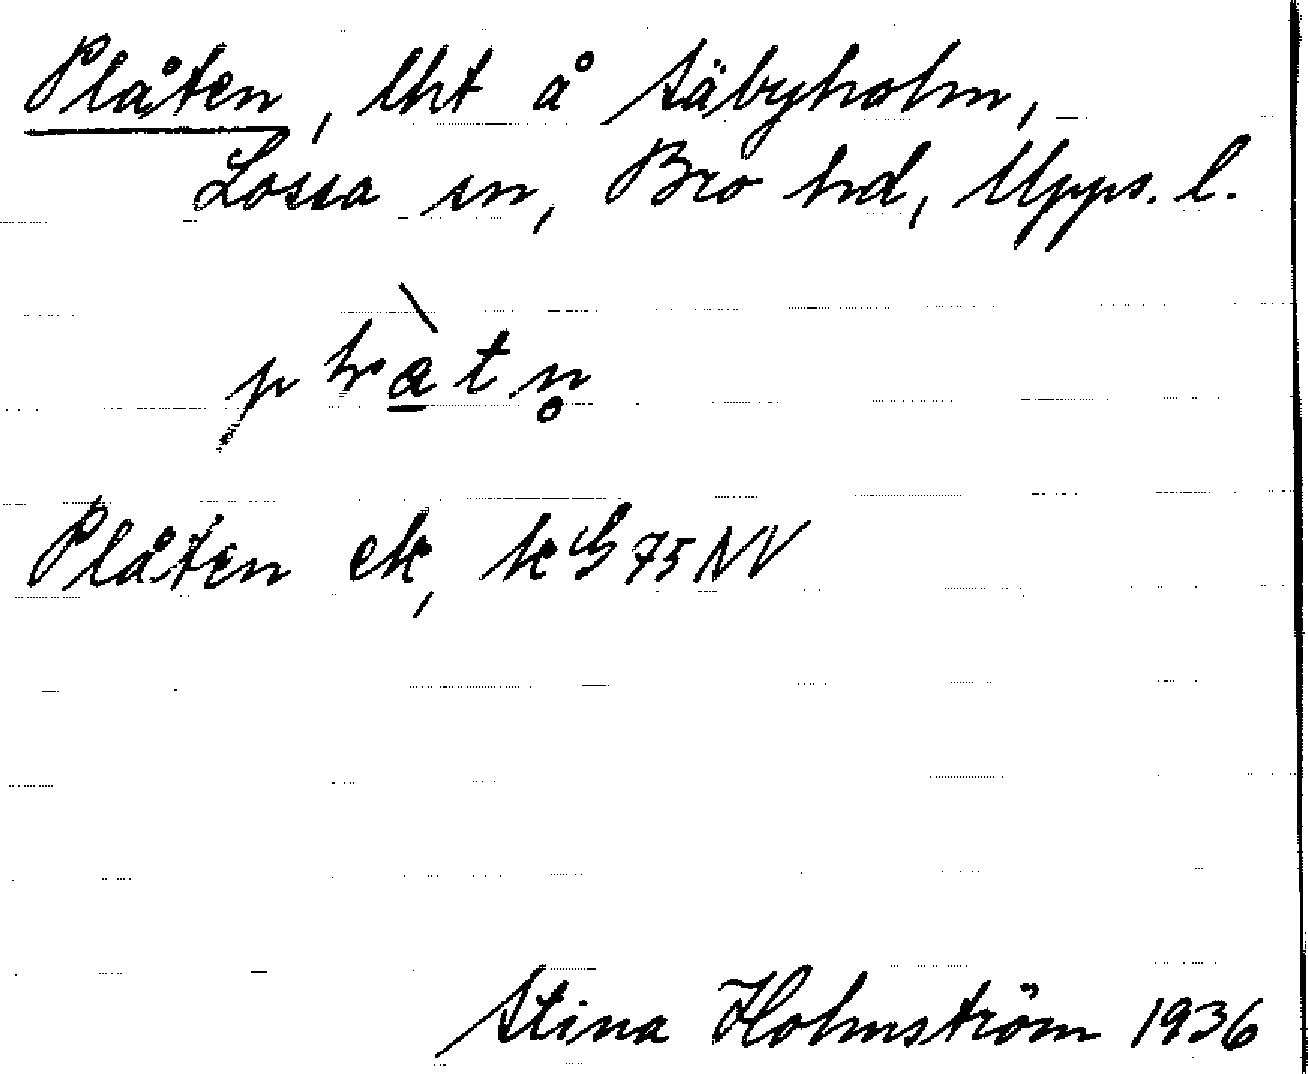 Plåten, lht å Säbyholm,
Lossa sn, Bro hd, Upps. l.
Plåten ek, kG 75 NV
Stina Holmström 1936